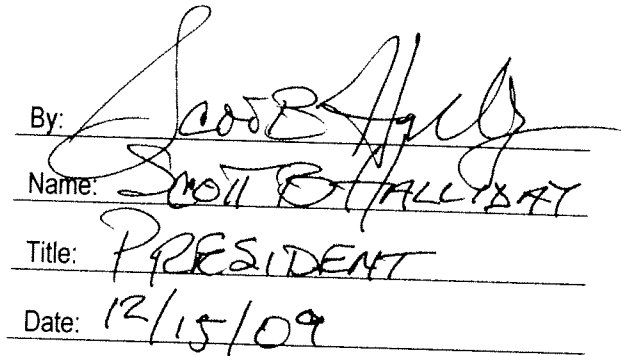 By: Scott B Hally
Name: SCOTT B HALLIDAY
Title: PRESIDENT
Date: 12/15/09